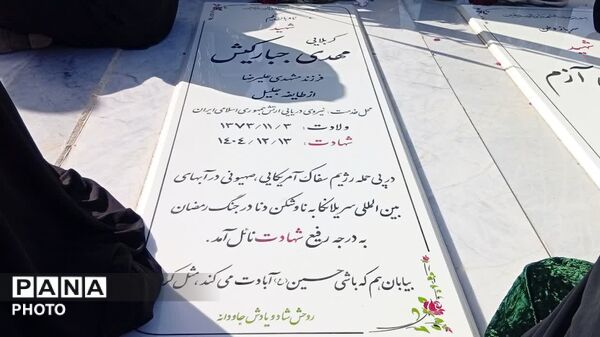 ناو بان یکم
شهید
کربلایی
مهدی جبارکیش
فرزند مشهدی علیرضا
از طایفه جلیل
محل خدمت: نیروی دریایی ارتش جمهوری اسلامی ایران
ولادت: ۱۳۷۳/۱۱/۳
شهادت: ۱۴۰۴/۱۲/۱۳
در پی حمله رژیم سفاک آمریکایی، صهیونی در آبهای
بین المللی سریلانکا به ناوشکن دنا در جنگ رمضان
به درجه رفیع شهادت نائل آمد.
بیابان هم که باشی حسین (ع) آبادت می کند، مثل
روحش شاد و یادش جاودانه
شهید
آزم
PANA
PHOTO